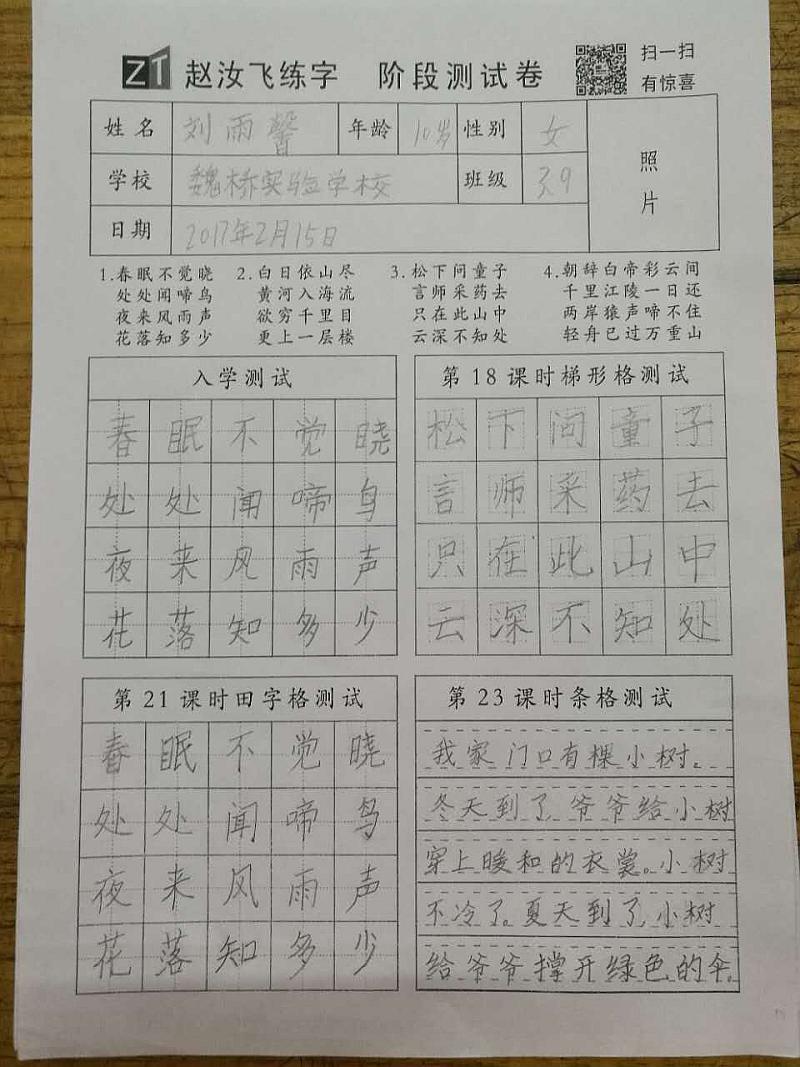 ZT 赵汝飞练字 阶段测试卷 扫一扫
有惊喜
姓名 刘雨馨 年龄 10岁 性别 女 照片
学校 魏桥实验学校 班级 3.9
日期 2017年2月15日
1.春眠不觉晓 2.白日依山尽 3.松下问童子 4.朝辞白帝彩云间
处处闻啼鸟 黄河入海流 言师采药去 千里江陵一日还
夜来风雨声 欲穷千里目 只在此山中 两岸猿声啼不住
花落知多少 更上一层楼 云深不知处 轻舟已过万重山
入学测试
春眠不觉晓
处处闻啼鸟
夜来风雨声
花落知多少
第18课时梯形格测试
松下问童子
言师采药去
只在此山中
云深不知处
第21课时田字格测试
春眠不觉晓
处处闻啼鸟
夜来风雨声
花落知多少
第23课时条格测试
我家门口有棵小树。
冬天到了,爷爷给小树
穿上暖和的衣裳。小树
不冷了。夏天到了,小树
给爷爷撑开绿色的伞。